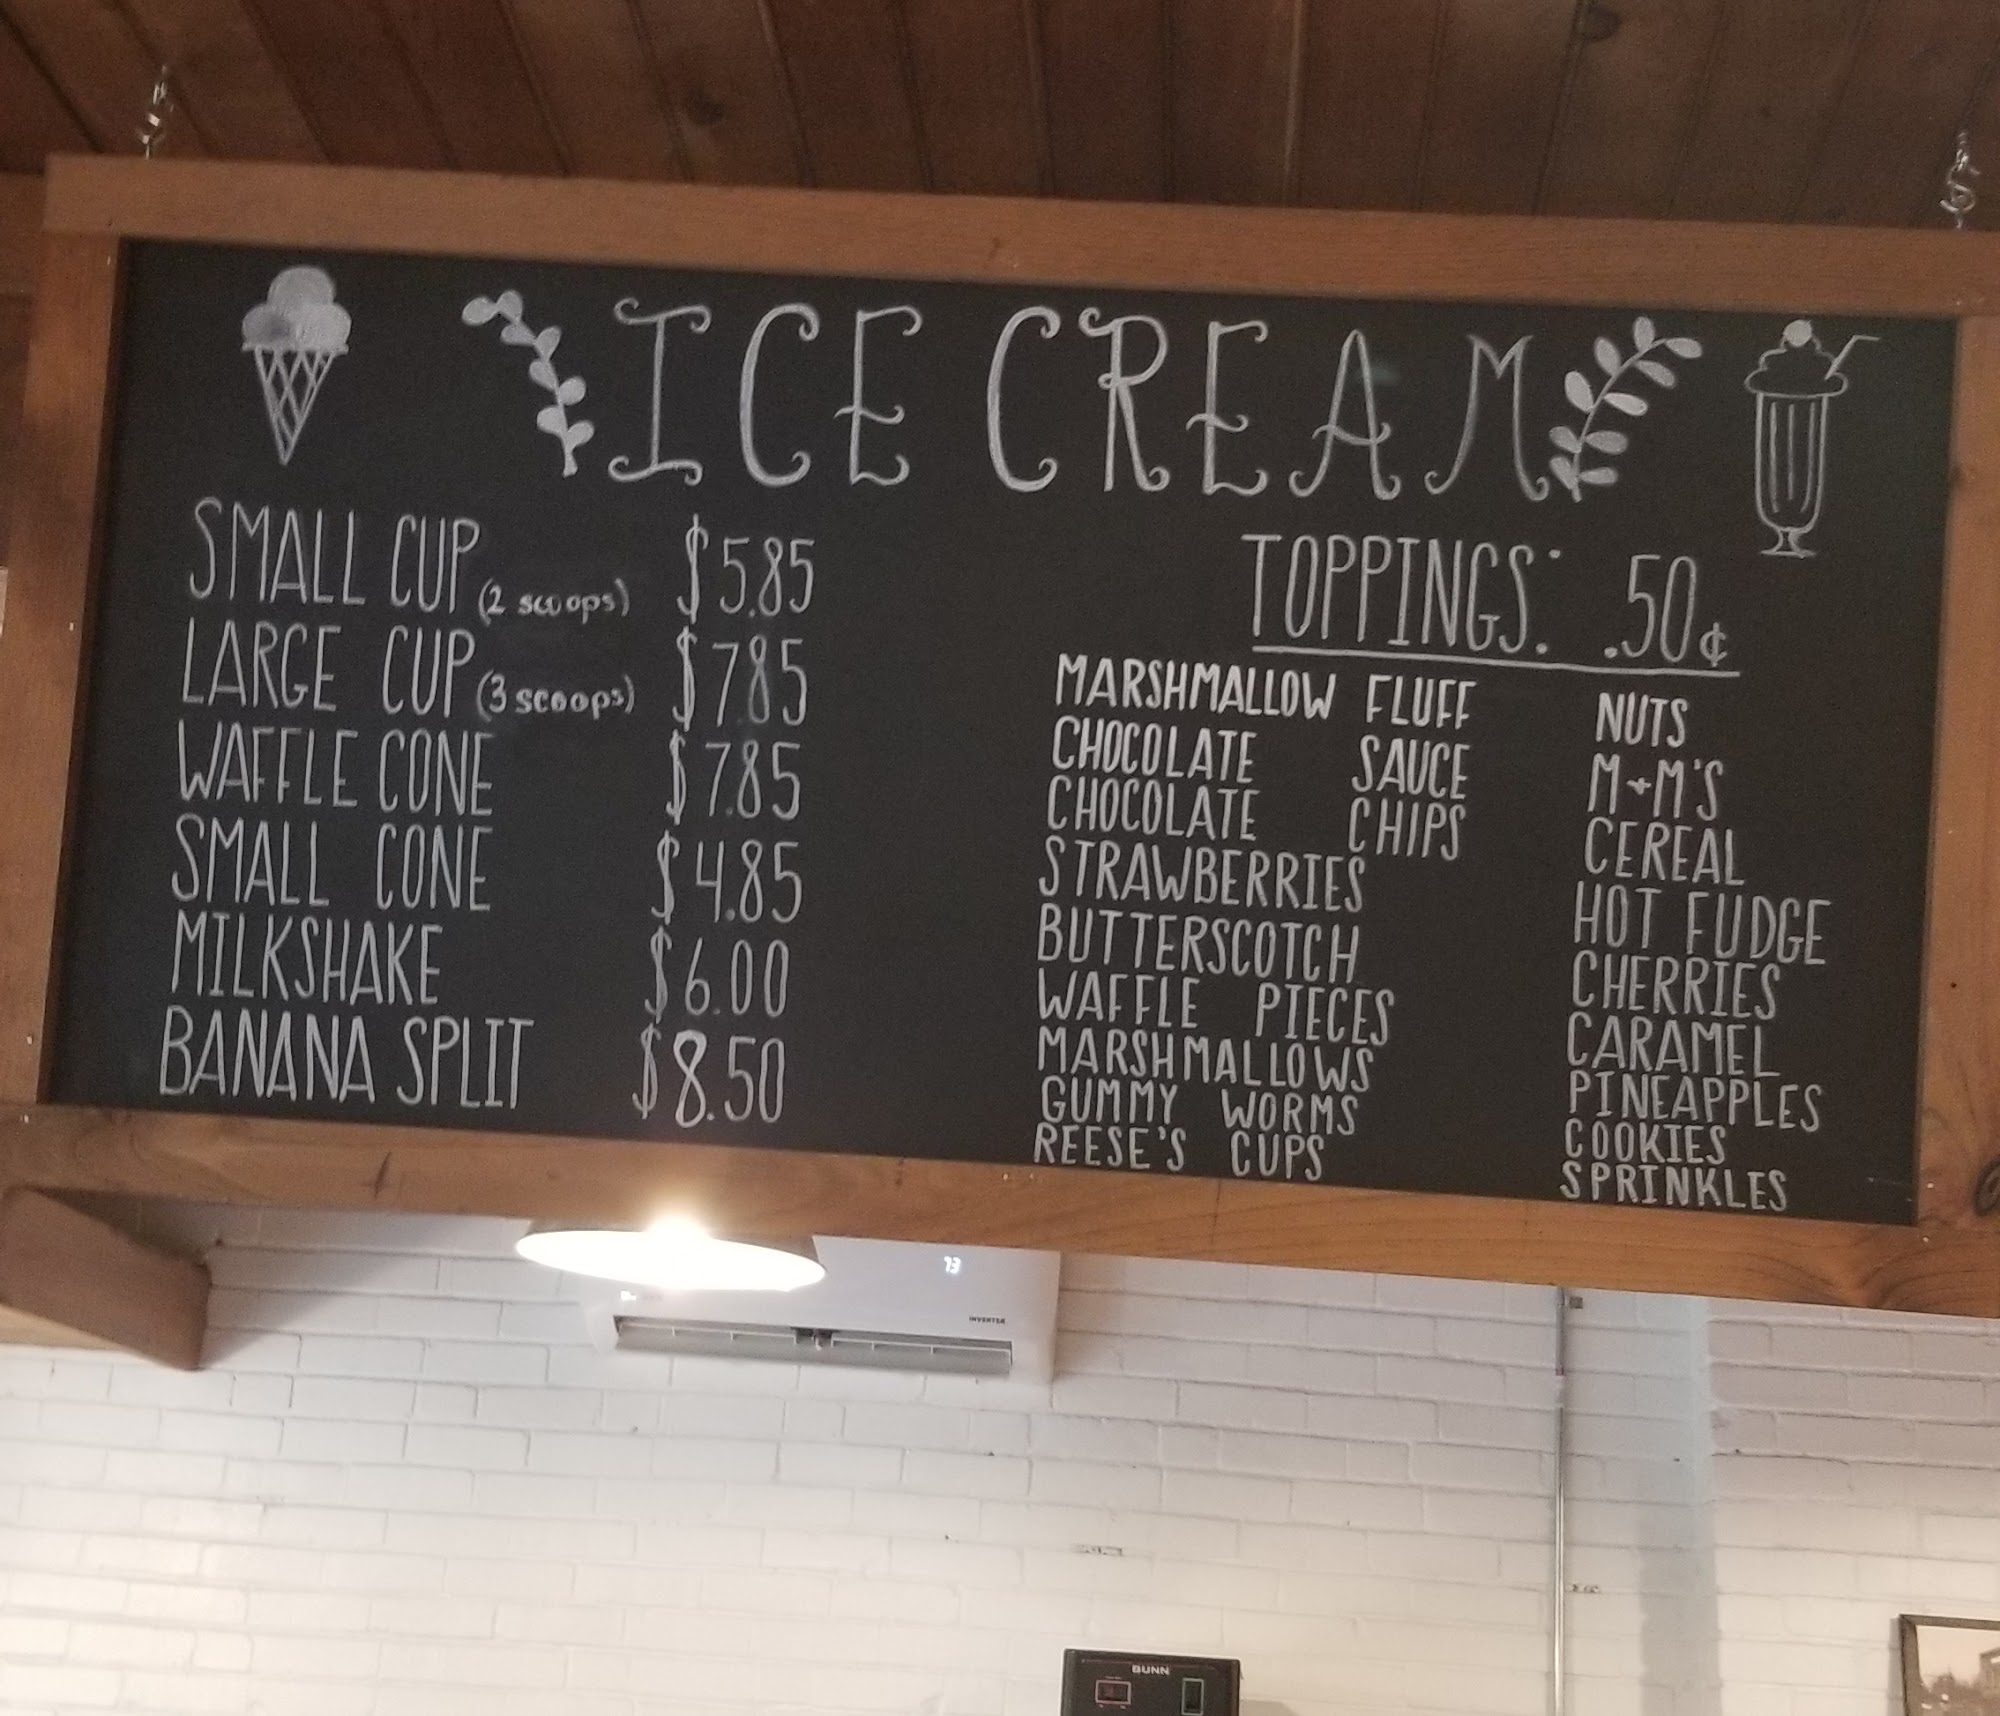 ICE CREAM
SMALL CUP (2 scoops) $5.85
LARGE CUP (3 scoops) $7.85
WAFFLE CONE $7.85
SMALL CONE $4.85
MILKSHAKE $6.00
BANANA SPLIT $8.50
TOPPINGS: .50¢
MARSHMALLOW FLUFF
CHOCOLATE SAUCE
CHOCOLATE CHIPS
STRAWBERRIES
BUTTERSCOTCH
WAFFLE PIECES
MARSHMALLOWS
GUMMY WORMS
REESE'S CUPS
NUTS
M+M'S
CEREAL
HOT FUDGE
CHERRIES
CARAMEL
PINEAPPLES
COOKIES
SPRINKLES
73
INVERTER
BUNN